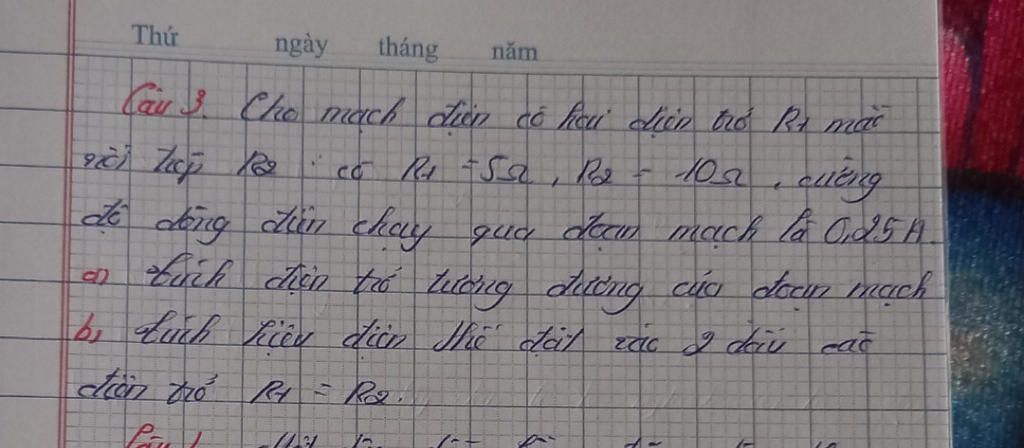 Thứ ngày tháng năm
Câu 3. Cho mạch điện có hai điện trở R1 mắc
nối tiếp R2 có R1 = 5Ω, R2 = 10Ω, cường
độ dòng điện chạy qua đoạn mạch là 0,25A.
a) tính điện trở tương đương của đoạn mạch
b, tính hiệu điện thế đặt vào 2 đầu các
điện trở R1 = R2.